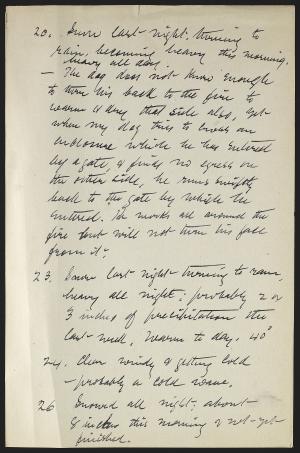 20. Snow last night: turning to
rain, becoming heavy this morning.
heavy all day.
— The dog does not know enough
to turn his back to the fire to
warm & dry that side also, yet
when my dog tries to cross an
enclosure which he has entered
by a gate, & finds no egress on
the other side, he runs swiftly
back to the gate by which he
entered. He works all around the
fire but will not turn his face
from it.
23. Snow last night turning to rain,
heavy all night; probably 2 or
3 inches of precipitation the
last week. Warm to day. 40°
24. Clear windy & getting cold
— probably a cold wave.
26 Snowed all night; about
8 inches this morning & not yet
finished.